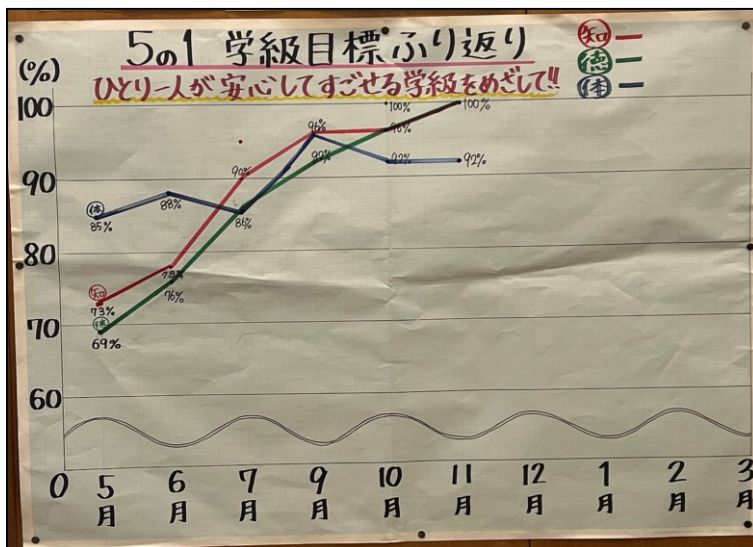 5の1 学級目標ふり返り
ひとり一人が安心してすごせる学級をめざして!!
知
徳
体
(%)
100
90
80
70
60
0
体
85%
88%
86%
96%
92%
92%
知
73%
78%
90%
96%
100%
100%
徳
69%
76%
92%
5月
6月
7月
9月
10月
11月
12月
1月
2月
3月